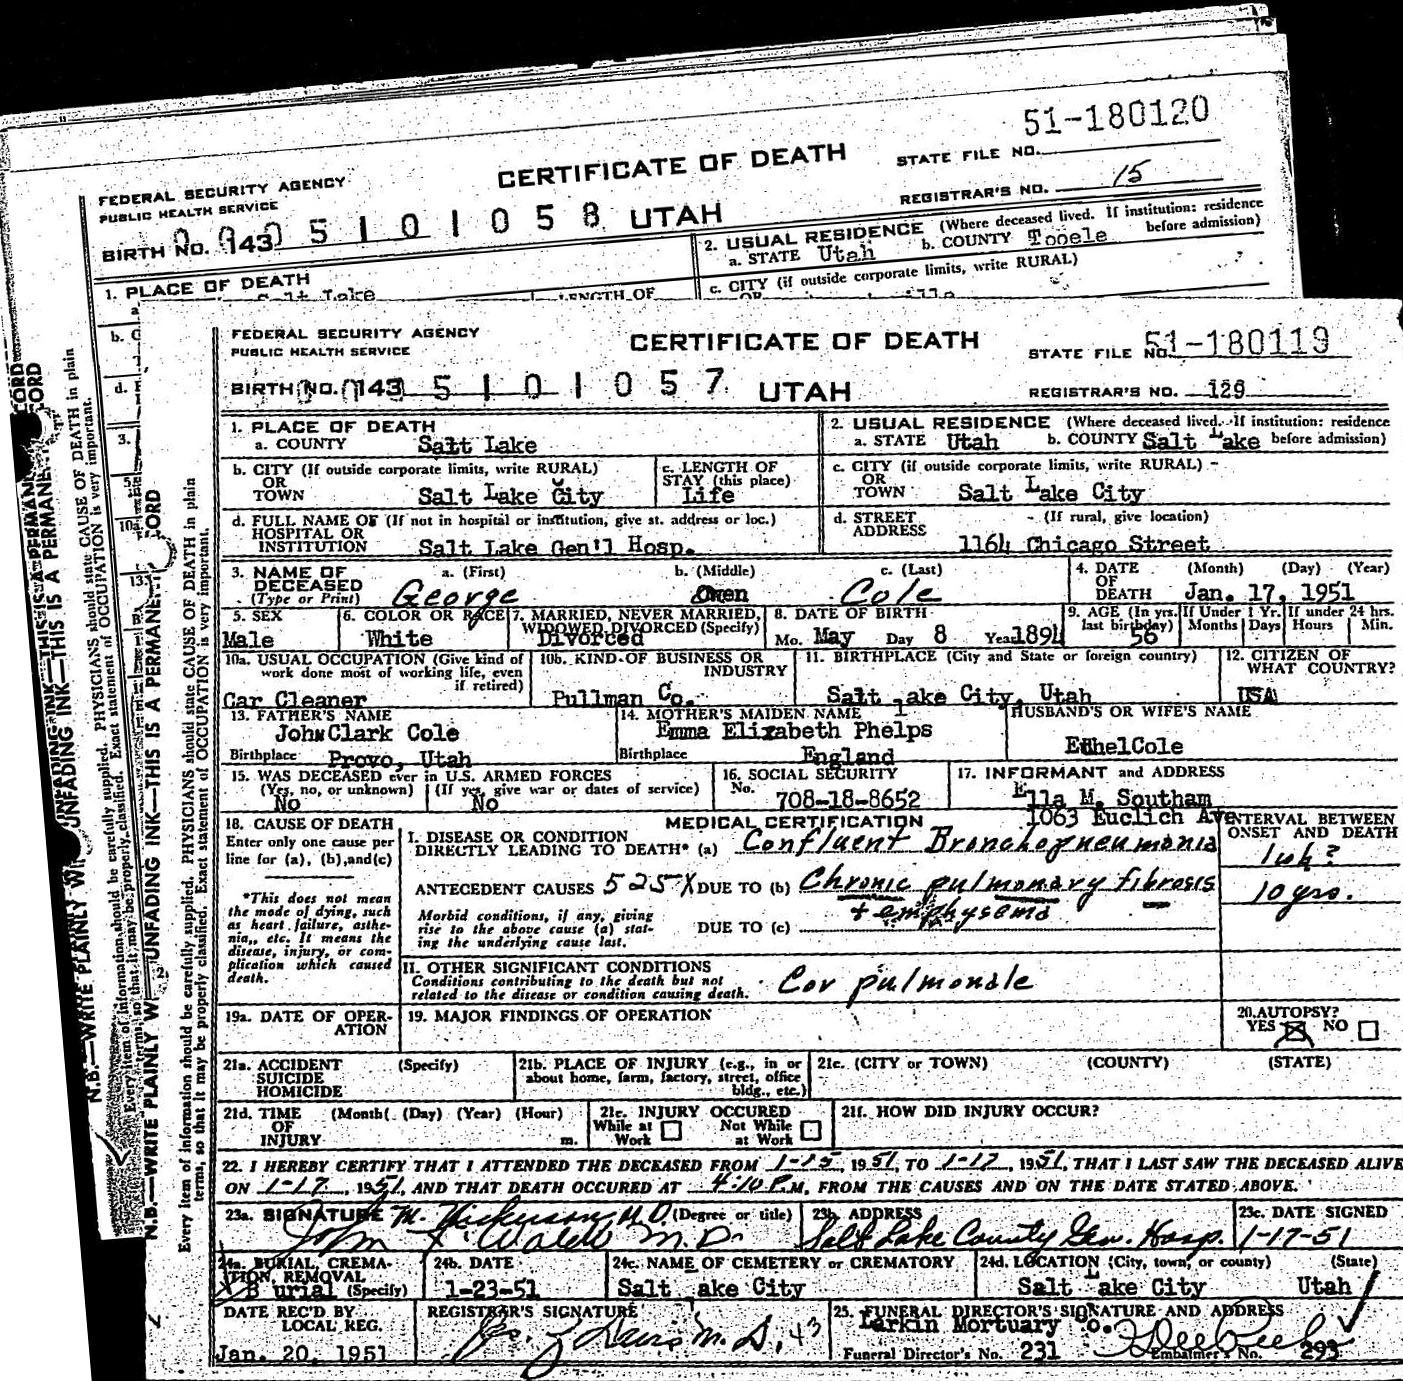 51-180120
CERTIFICATE OF DEATH
STATE FILE NO.
FEDERAL SECURITY AGENCY
PUBLIC HEALTH SERVICE
REGISTRAR'S NO. 15
BIRTH NO. 143 5 1 0 1 0 5 8 UTAH
2. USUAL RESIDENCE (Where deceased lived. If institution: residence
a. STATE Utah b. COUNTY Tooele before admission)
1. PLACE OF DEATH
c. CITY (if outside corporate limits, write RURAL)
Salt Lake
LENGTH OF
FEDERAL SECURITY AGENCY
PUBLIC HEALTH SERVICE
CERTIFICATE OF DEATH
STATE FILE NO. 51-180119
BIRTH NO. 143 5 1 0 1 0 5 7 UTAH
REGISTRAR'S NO. 129
1. PLACE OF DEATH
a. COUNTY Salt Lake
2. USUAL RESIDENCE (Where deceased lived. If institution: residence
a. STATE Utah b. COUNTY Salt Lake before admission)
b. CITY (If outside corporate limits, write RURAL)
OR
TOWN Salt Lake City
c. LENGTH OF
STAY (this place)
Life
c. CITY (if outside corporate limits, write RURAL)
OR
TOWN Salt Lake City
d. FULL NAME OF (If not in hospital or institution, give st. address or loc.)
HOSPITAL OR
INSTITUTION Salt Lake Gen'l Hosp.
d. STREET (If rural, give location)
ADDRESS
1164 Chicago Street
3. NAME OF a. (First) b. (Middle) c. (Last)
DECEASED
(Type or Print) George Owen Cole
4. DATE (Month) (Day) (Year)
OF
DEATH Jan. 17, 1951
5. SEX
Male
6. COLOR OR RACE
White
7. MARRIED, NEVER MARRIED,
WIDOWED, DIVORCED (Specify)
Divorced
8. DATE OF BIRTH
Mo. May Day 8 Year 1894
9. AGE (In yrs.
last birthday) 56
If Under 1 Yr.
Months Days
If under 24 hrs.
Hours Min.
10a. USUAL OCCUPATION (Give kind of
work done most of working life, even
if retired)
Car Cleaner
10b. KIND OF BUSINESS OR
INDUSTRY
Pullman Co.
11. BIRTHPLACE (City and State or foreign country)
Salt Lake City, Utah
12. CITIZEN OF
WHAT COUNTRY?
USA
13. FATHER'S NAME
John Clark Cole
Birthplace Provo, Utah
14. MOTHER'S MAIDEN NAME
Emma Elizabeth Phelps
Birthplace England
HUSBAND'S OR WIFE'S NAME
Ethel Cole
15. WAS DECEASED ever in U.S. ARMED FORCES
(Yes, no, or unknown) (If yes, give war or dates of service)
No No
16. SOCIAL SECURITY
No.
708-18-8652
17. INFORMANT and ADDRESS
Ella M. Southam
1063 Euclich Ave
18. CAUSE OF DEATH
Enter only one cause per
line for (a), (b), and (c)
*This does not mean
the mode of dying, such
as heart failure, asthe-
nia, etc. It means the
disease, injury, or com-
plication which caused
death.
MEDICAL CERTIFICATION
I. DISEASE OR CONDITION
DIRECTLY LEADING TO DEATH* (a) Confluent Bronchopneumonia
ANTECEDENT CAUSES 525X DUE TO (b) Chronic pulmonary fibrosis
+ emphysema
Morbid conditions, if any, giving
rise to the above cause (a) stat-
ing the underlying cause last.
DUE TO (c)
II. OTHER SIGNIFICANT CONDITIONS
Conditions contributing to the death but not
related to the disease or condition causing death.
Cor pulmonale
INTERVAL BETWEEN
ONSET AND DEATH
1 wk?
10 yrs.
19a. DATE OF OPER-
ATION
19. MAJOR FINDINGS OF OPERATION
20. AUTOPSY?
YES NO
21a. ACCIDENT (Specify)
SUICIDE
HOMICIDE
21b. PLACE OF INJURY (e.g., in or
about home, farm, factory, street, office
bldg., etc.)
21c. (CITY or TOWN) (COUNTY) (STATE)
21d. TIME (Month) (Day) (Year) (Hour)
OF
INJURY m.
21e. INJURY OCCURED
While at Not While
Work at Work
21f. HOW DID INJURY OCCUR?
22. I HEREBY CERTIFY THAT I ATTENDED THE DECEASED FROM 1-15, 1951, TO 1-17, 1951, THAT I LAST SAW THE DECEASED ALIVE
ON 1-17, 1951, AND THAT DEATH OCCURED AT 4:10 P.M, FROM THE CAUSES AND ON THE DATE STATED ABOVE.
23a. SIGNATURE (Degree or title)
M.D.
John M.D.
23b. ADDRESS
Salt Lake County Gen. Hosp.
23c. DATE SIGNED
1-17-51
24a. BURIAL, CREMA-
TION, REMOVAL
Burial (Specify)
24b. DATE
1-23-51
24c. NAME OF CEMETERY or CREMATORY
Salt Lake City
24d. LOCATION (City, town, or county) (State)
Salt Lake City Utah
DATE REC'D BY
LOCAL REG.
Jan. 20, 1951
REGISTRAR'S SIGNATURE
M.D. 43
25. FUNERAL DIRECTOR'S SIGNATURE AND ADDRESS
Larkin Mortuary Co.
Funeral Director's No. 231 Embalmer's No. 293
N.B.—WRITE PLAINLY WITH UNFADING INK—THIS IS A PERMANENT RECORD
Every item of information should be carefully supplied. PHYSICIANS should state CAUSE OF DEATH in plain
terms, so that it may be properly classified. Exact statement of OCCUPATION is very important.